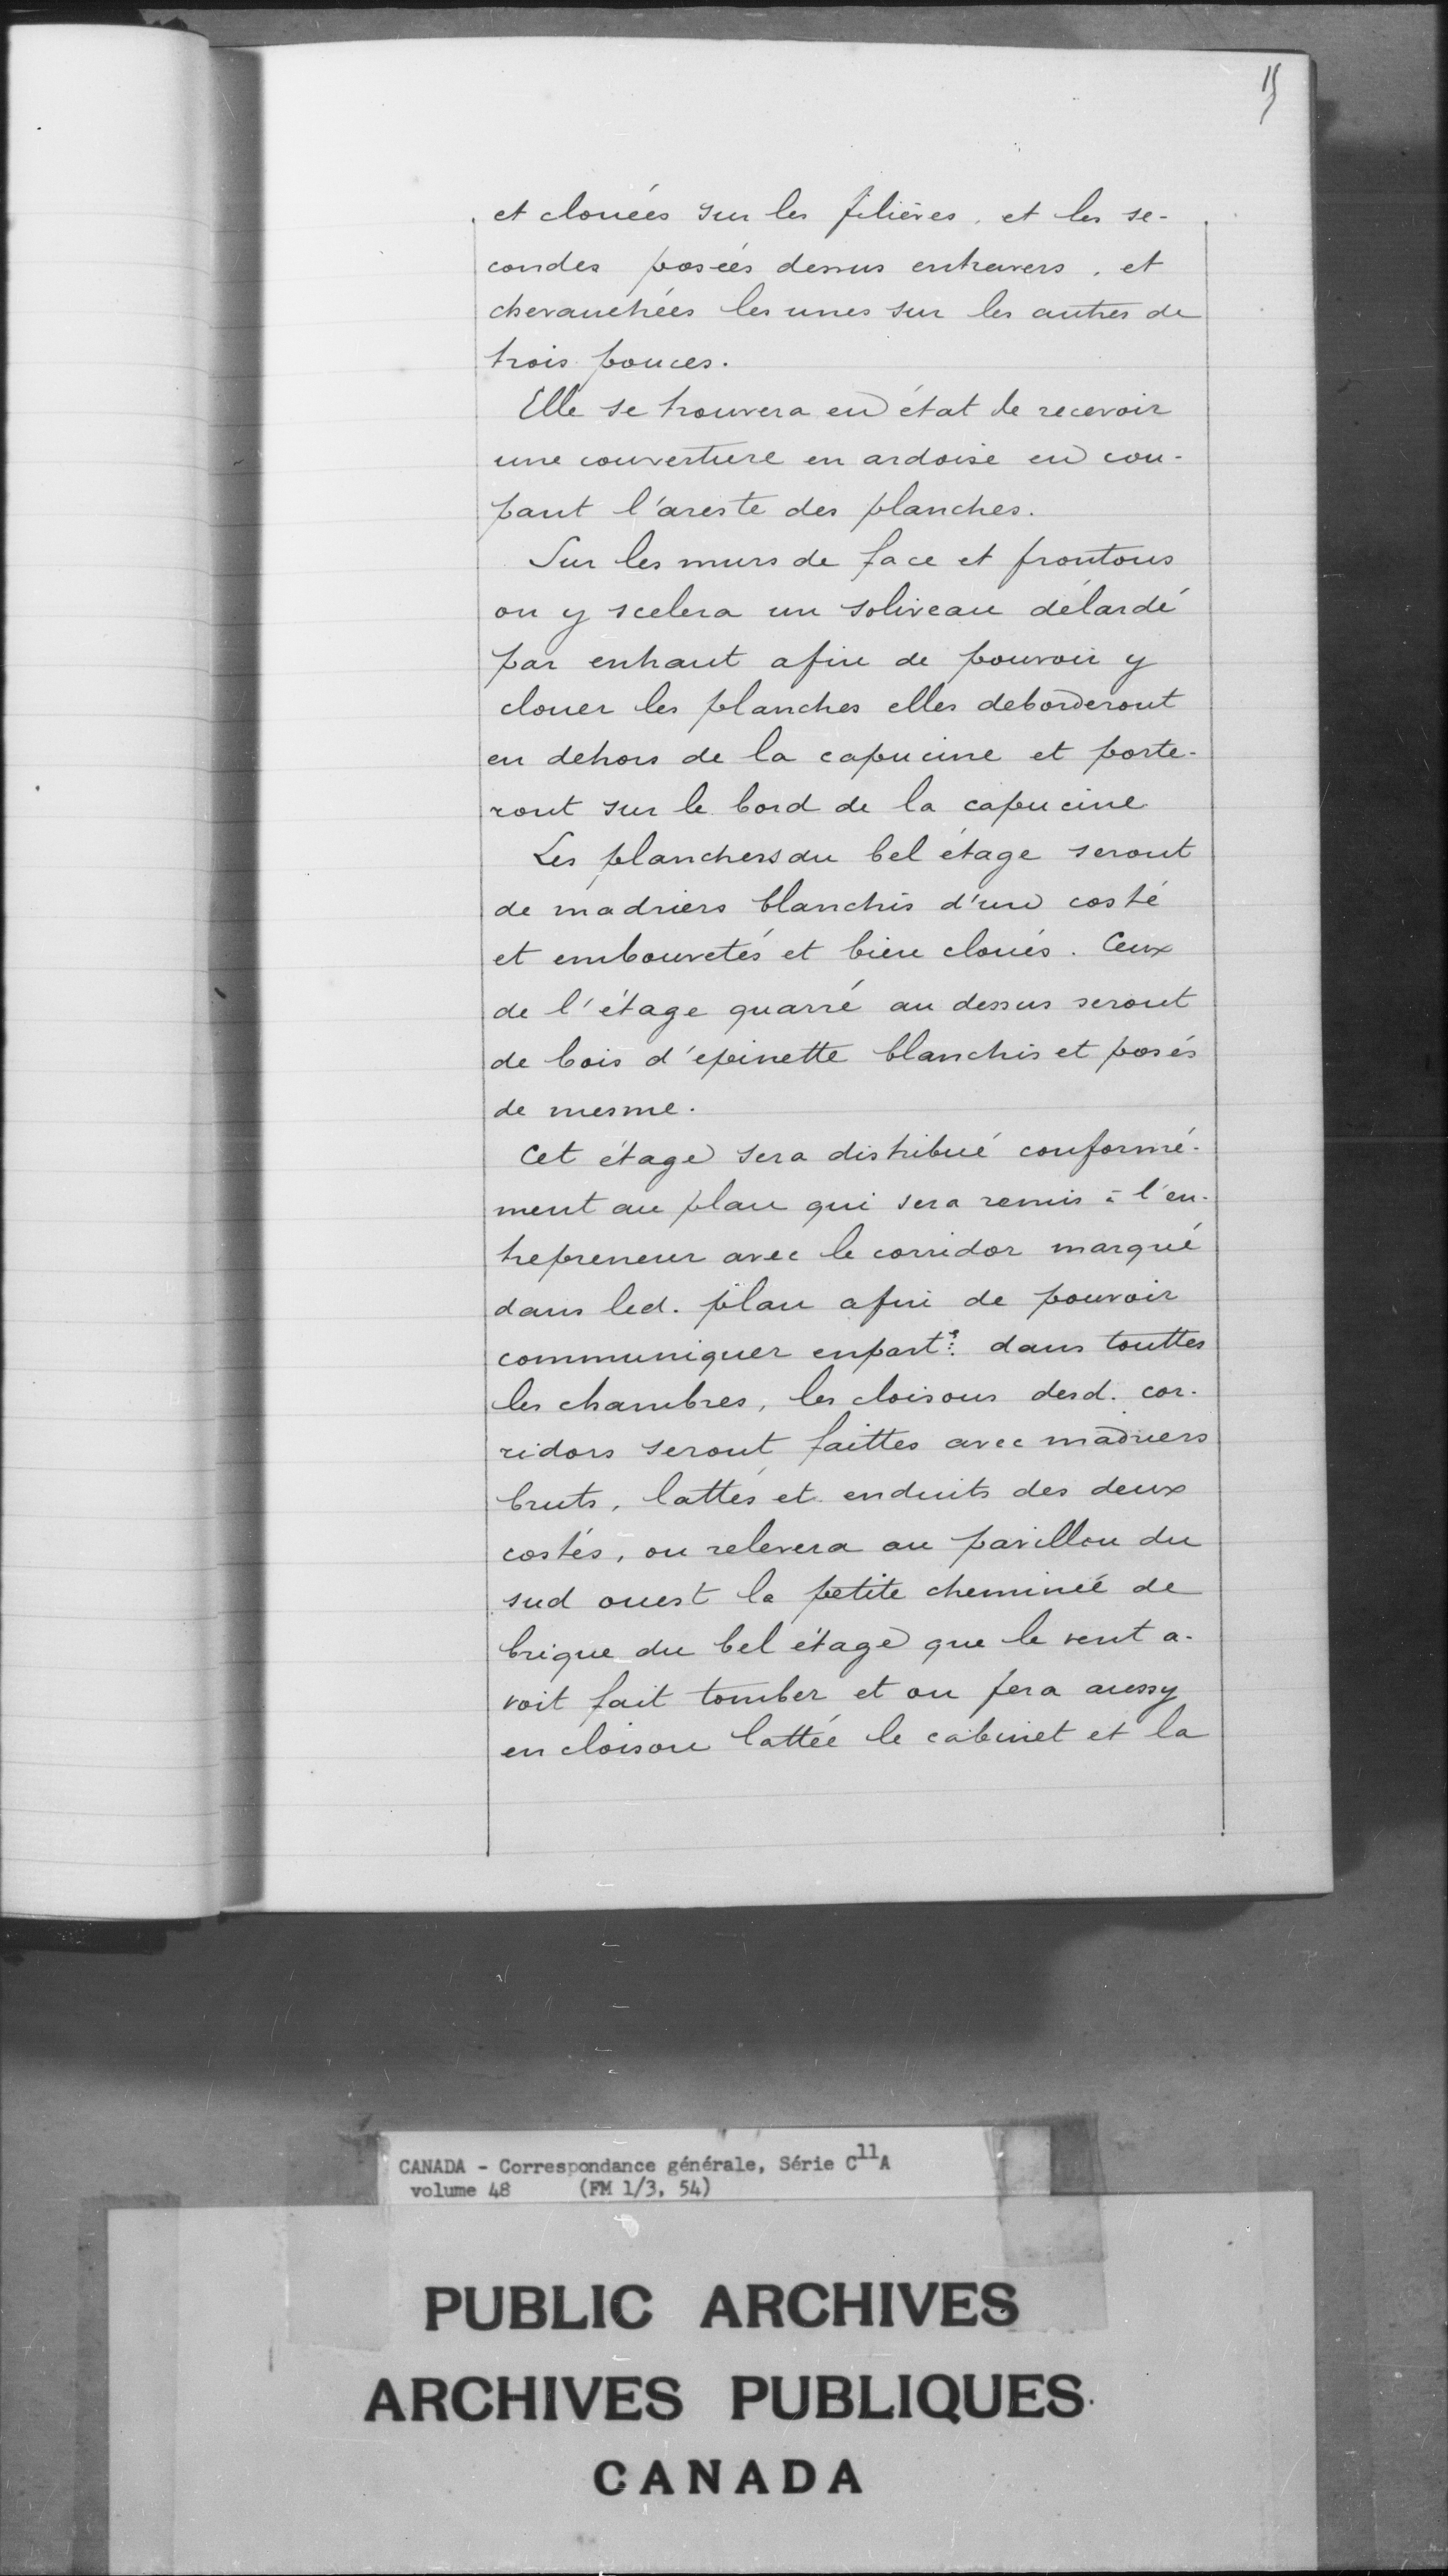 15
et clouées sur les filières, et les se-
condes posées dessus entravers, et
chevauchées les unes sur les autres de
trois pouces.
Elle se trouvera en état de recevoir
une couverture en ardoise en cou-
pant l'areste des planches.
Sur les murs de face et frontons
on y scelera un soliveau délardé
par enhaut afin de pouvoir y
clouer les planches elles deborderont
en dehors de la capucine et porte-
ront sur le bord de la capucine
Les planchers du bel étage seront
de madriers blanchis d'un costé
et embouvetés et bien cloués. Ceux
de l'étage quarré au dessus seront
de bois d'epinette blanchis et posés
de mesme.
Cet étage sera distribué conformé-
ment au plan qui sera remis à l'en-
trepreneur avec le corridor marqué
dans led. plan afin de pouvoir
communiquer enpart.e dans touttes
les chambres, les cloisons desd. cor-
ridors seront faittes avec madriers
bruts, lattés et enduits des deux
costés, on relevera au pavillon du
sud ouest la petite cheminée de
brique du bel étage que le vent a-
voit fait tomber et on fera aussy
en cloison lattée le cabinet et la
CANADA - Correspondance générale, Série C11A
volume 48 (FM 1/3, 54)
PUBLIC ARCHIVES
ARCHIVES PUBLIQUES
CANADA